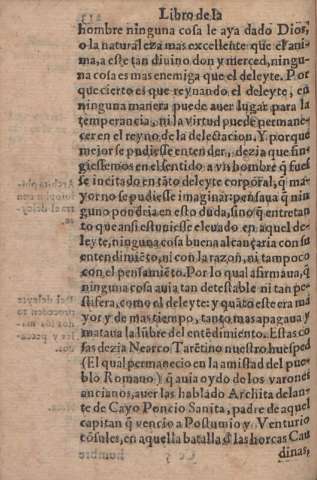 Libro de la
hombre ninguna cosa le aya dado Dios,
o la naturaleza mas excellente que el ani-
ma, a este tan diuino don y merced, ningu-
na cosa es mas enemiga que el deleyte. Por
que cierto es que reynando el deleyte, en
ninguna manera puede auer lugar para la
temperancia, ni la virtud puede permane-
cer en el reyno de la delectacion. Y porque
mejor se pudiesse entender, dezia que fin-
giessemos en el sentido a vn hombre q̃ fues
se incitado en tãto deleyte corporal, q̃ ma-
yor no se pudiesse imaginar: pensaua q̃ nin
guno pondria en esto duda, sino q̃ entretan
to que ansi estuuiesse eleuado en aquel de-
leyte, ninguna cosa buena alcançaria con su
entendimiẽto, ni con la razon, ni tampoco
con el pensamiẽto. Por lo qual afirmaua, q̃
ninguna cosa auia tan detestable ni tan pe-
stifera, como el deleyte: y quãto este era ma
yor y de mas tiempo, tanto mas apagaua y
mataua la lũbre del entẽdimiento. Estas co
sas dezia Nearco Tarẽtino nuestro huesped
(El qual permanecio en la amistad del pue
blo Romano) q̃ auia oydo de los varones
ancianos, auer las hablado Archita delan-
te de Cayo Poncio Sanita, padre de aquel
capitan q̃ vencio a Postumio y Venturio
cõsules, en aquella batalla d̃ las horcas Cau
dinas,